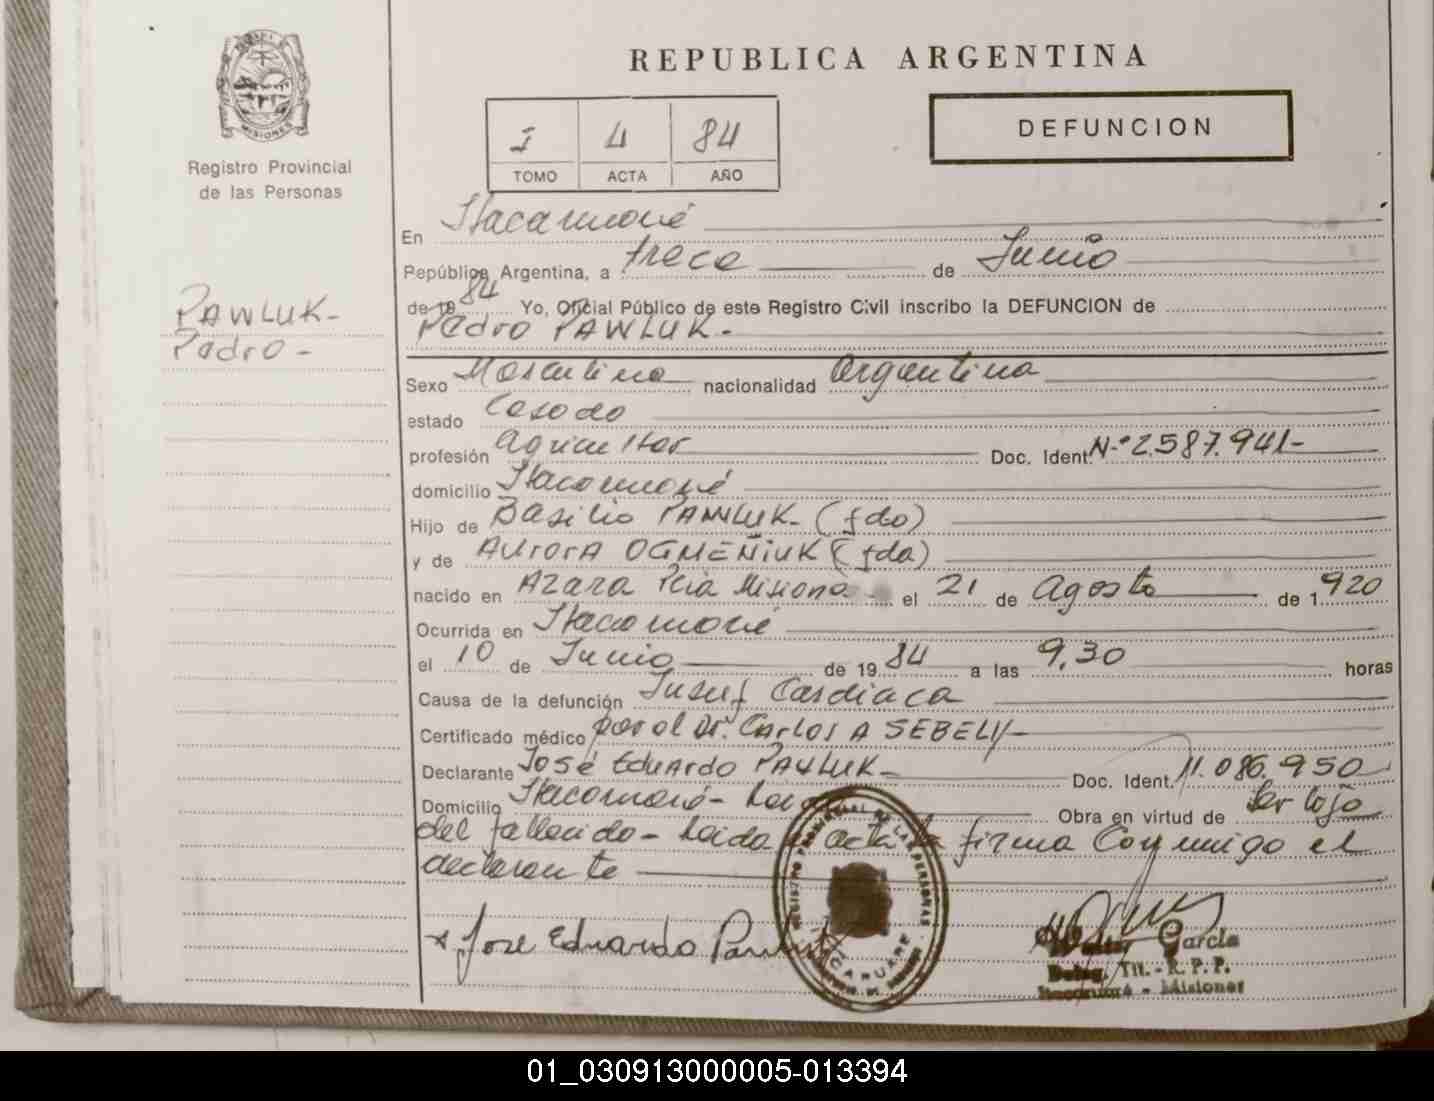 MISIONES
Registro Provincial
de las Personas
PAWLUK-
Pedro-
REPUBLICA ARGENTINA
I 4 84
TOMO ACTA AÑO
DEFUNCION
En Itacaruaré
República Argentina, a trece de Junio
de 19 84 Yo, Oficial Público de este Registro Civil inscribo la DEFUNCION de
Pedro PAWLUK-
Sexo Masculino nacionalidad Argentina
estado Casado
profesión agricultor Doc. Ident. N.º 2.587.941-
domicilio Itacaruaré
Hijo de Basilio PAWLUK- (fdo)
y de AURORA OGMEÑIUK (fda)
nacido en AZARA Pcia Misiones el 21 de Agosto de 1.920
Ocurrida en Itacaruaré
el 10 de Junio de 19 84 a las 9,30 horas
Causa de la defunción Insuf Cardiaca
Certificado médico por el Dr. Carlos A SEBELY-
Declarante José Eduardo PAWLUK- Doc. Ident. 11.086.950
Domicilio Itacaruaré- Obra en virtud de Ser hijo
del fallecido- Leida acta la firma Conmigo el
declarante
x Jose Eduardo Pawluk
REGISTRO PROVINCIAL DE LAS PERSONAS
ITACARUARE
Walter García
Deleg. Tit. - R. P. P.
Itacaruaré - Misiones
01_030913000005-013394